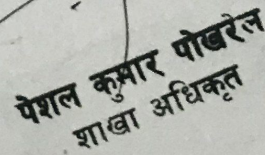 पेशल कुमार पोखरेल
शाखा अधिकृत